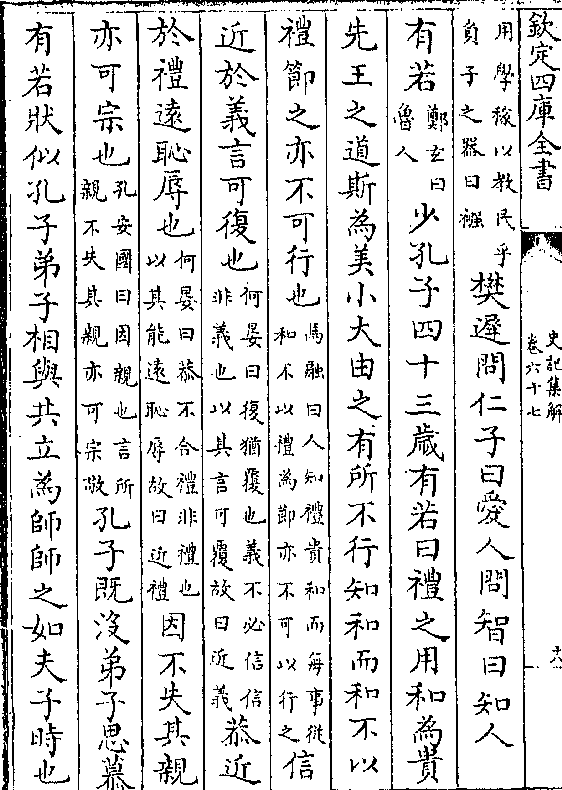 欽定四庫全書
史記集解
卷六十七
十八
用學稼以教民乎
負子之器曰襁
樊遲問仁子曰愛人問智曰知人
有若
鄭玄曰
魯人
少孔子四十三歲有若曰禮之用和為貴
先王之道斯為美小大由之有所不行知和而和不以
禮節之亦不可行也
馬融曰人知禮貴和而每事從
和不以禮為節亦不可以行之
信
近於義言可復也
何晏曰復猶覆也義不必信信
非義也以其言可覆故曰近義
恭近
於禮遠恥辱也
何晏曰恭不合禮非禮也
以其能遠恥辱故曰近禮
因不失其親
亦可宗也
孔安國曰因親也言所
親不失其親亦可宗敬
孔子既沒弟子思慕
有若狀似孔子弟子相與共立為師師之如夫子時也